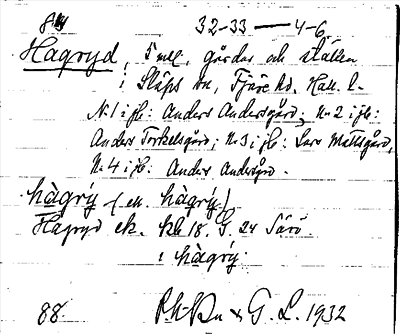 84 32-33 — 4-6
Hagryd, 5 mtl, gårdar och ställen
i Släps sn, Fjäre hd. Hall. l.
No 1 i jb: Anders Andersgård; No 2 i jb:
Anders Torkelsgård; No 3 i jb: Lars Mattsgård,
No 4 i jb: Anders Andersgård.
hàgrý (en hàgrý)
Hagryd ek. kbl 18. G. 24 Särö.
i hàgrý.
88. G. L. 1932